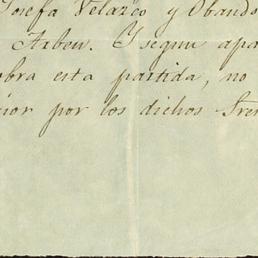 Josefa Velazco y Obando
Arben. Y segun apa
obra esta partida, no
por los dichos